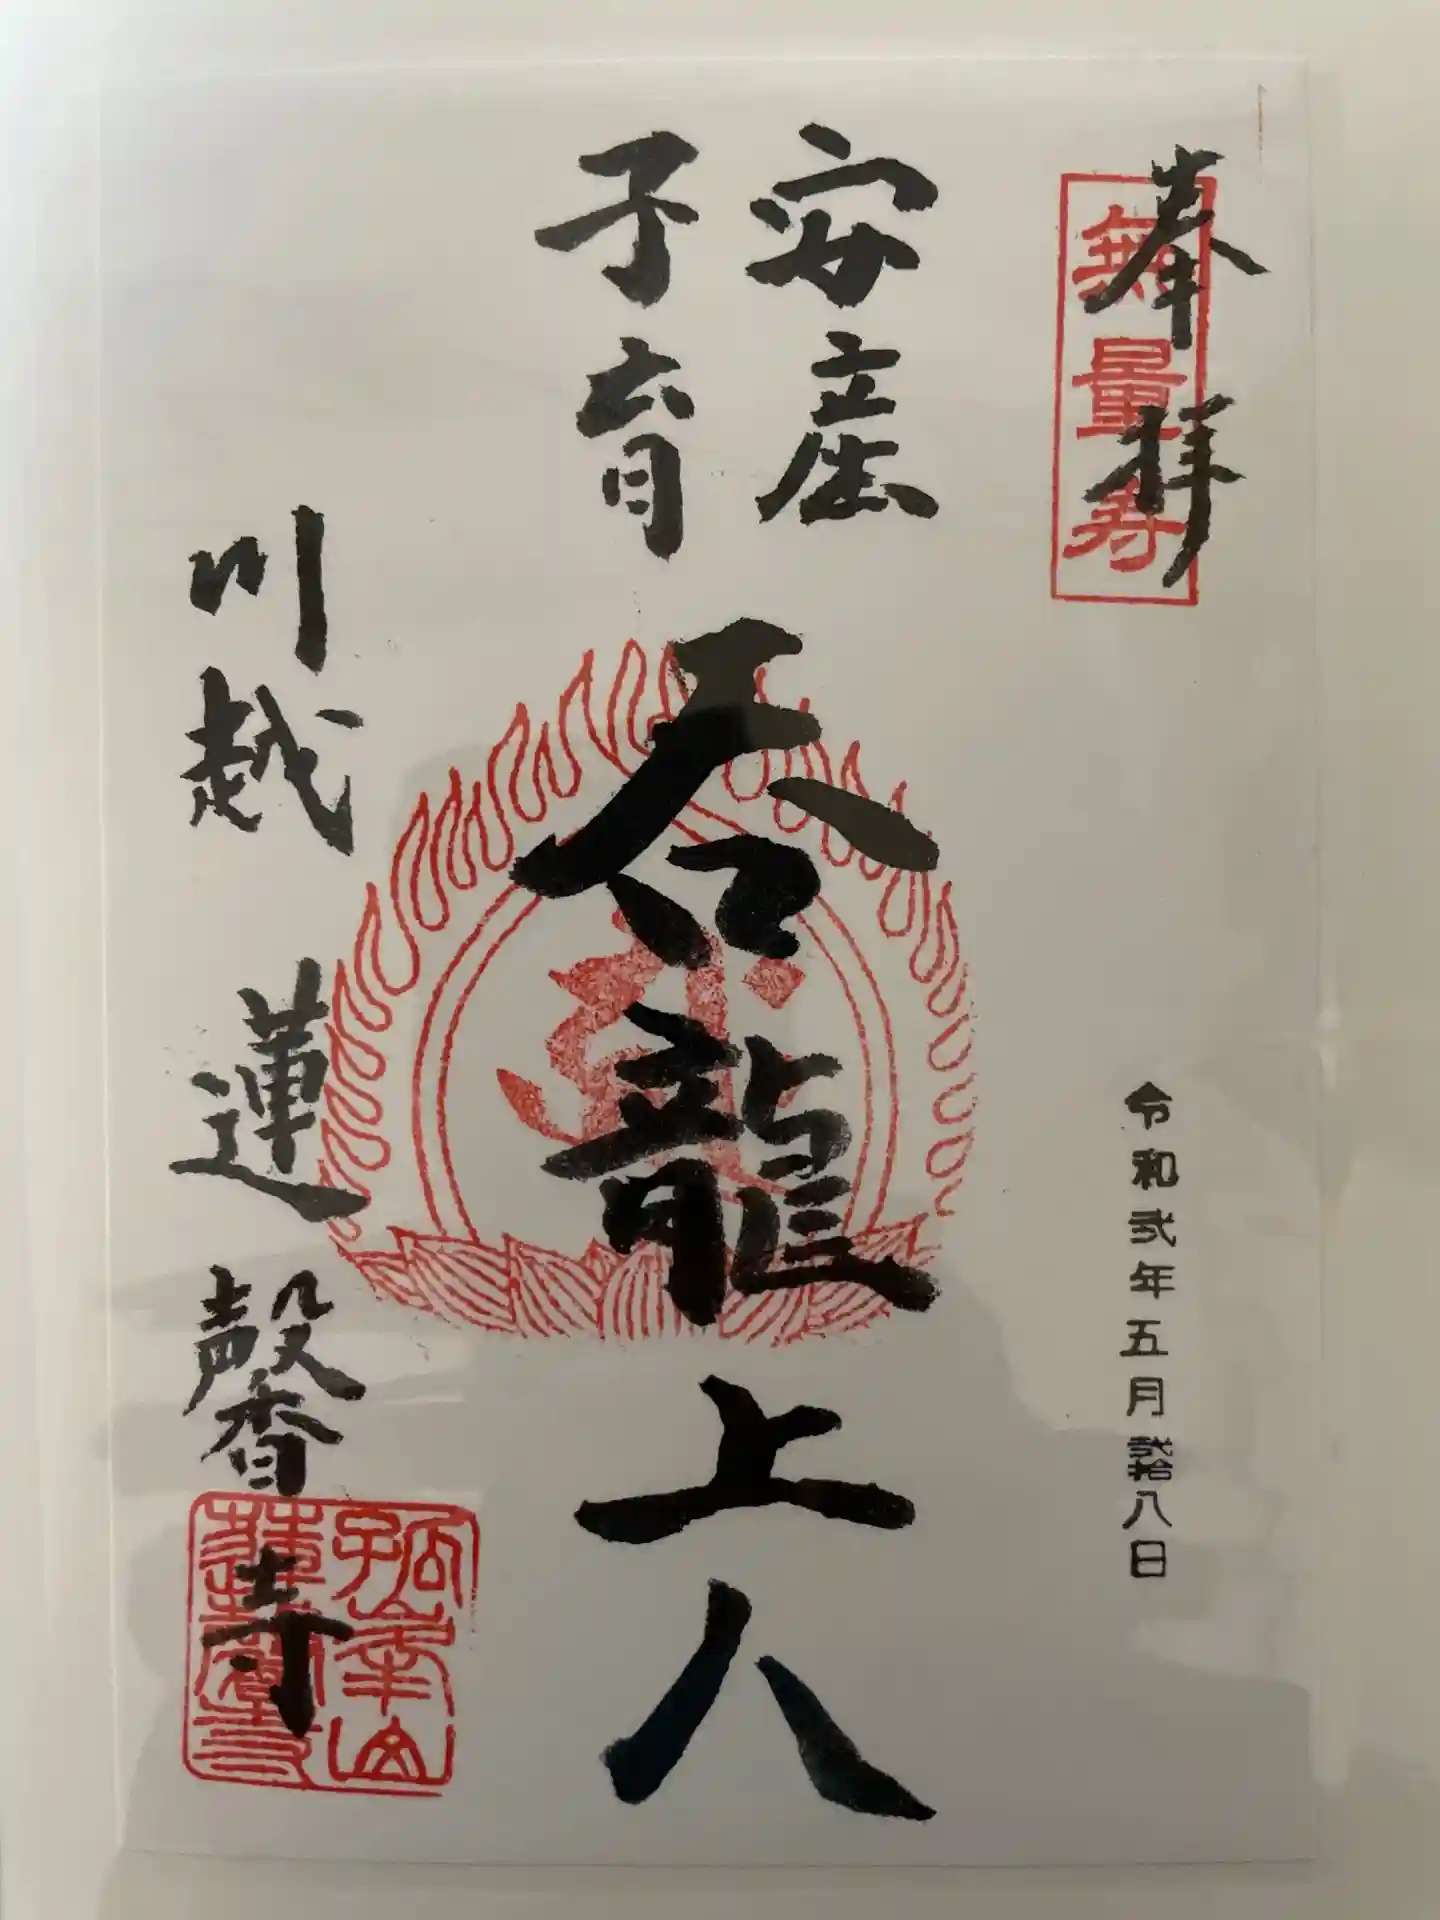 奉拝
無量寿
令和弐年五月弐拾八日
安産
子育
呑龍上人
川越 蓮馨寺
孤峯山
蓮馨寺